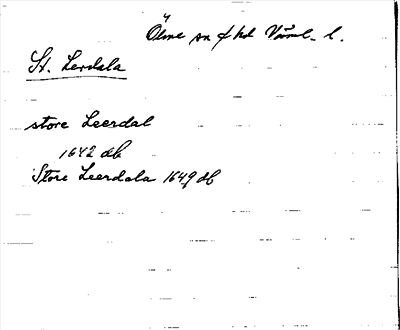 Ölme sn f hd Värml. l.
St. Lerdala
store Leerdal
1642 db
Store Leerdala 1649 db